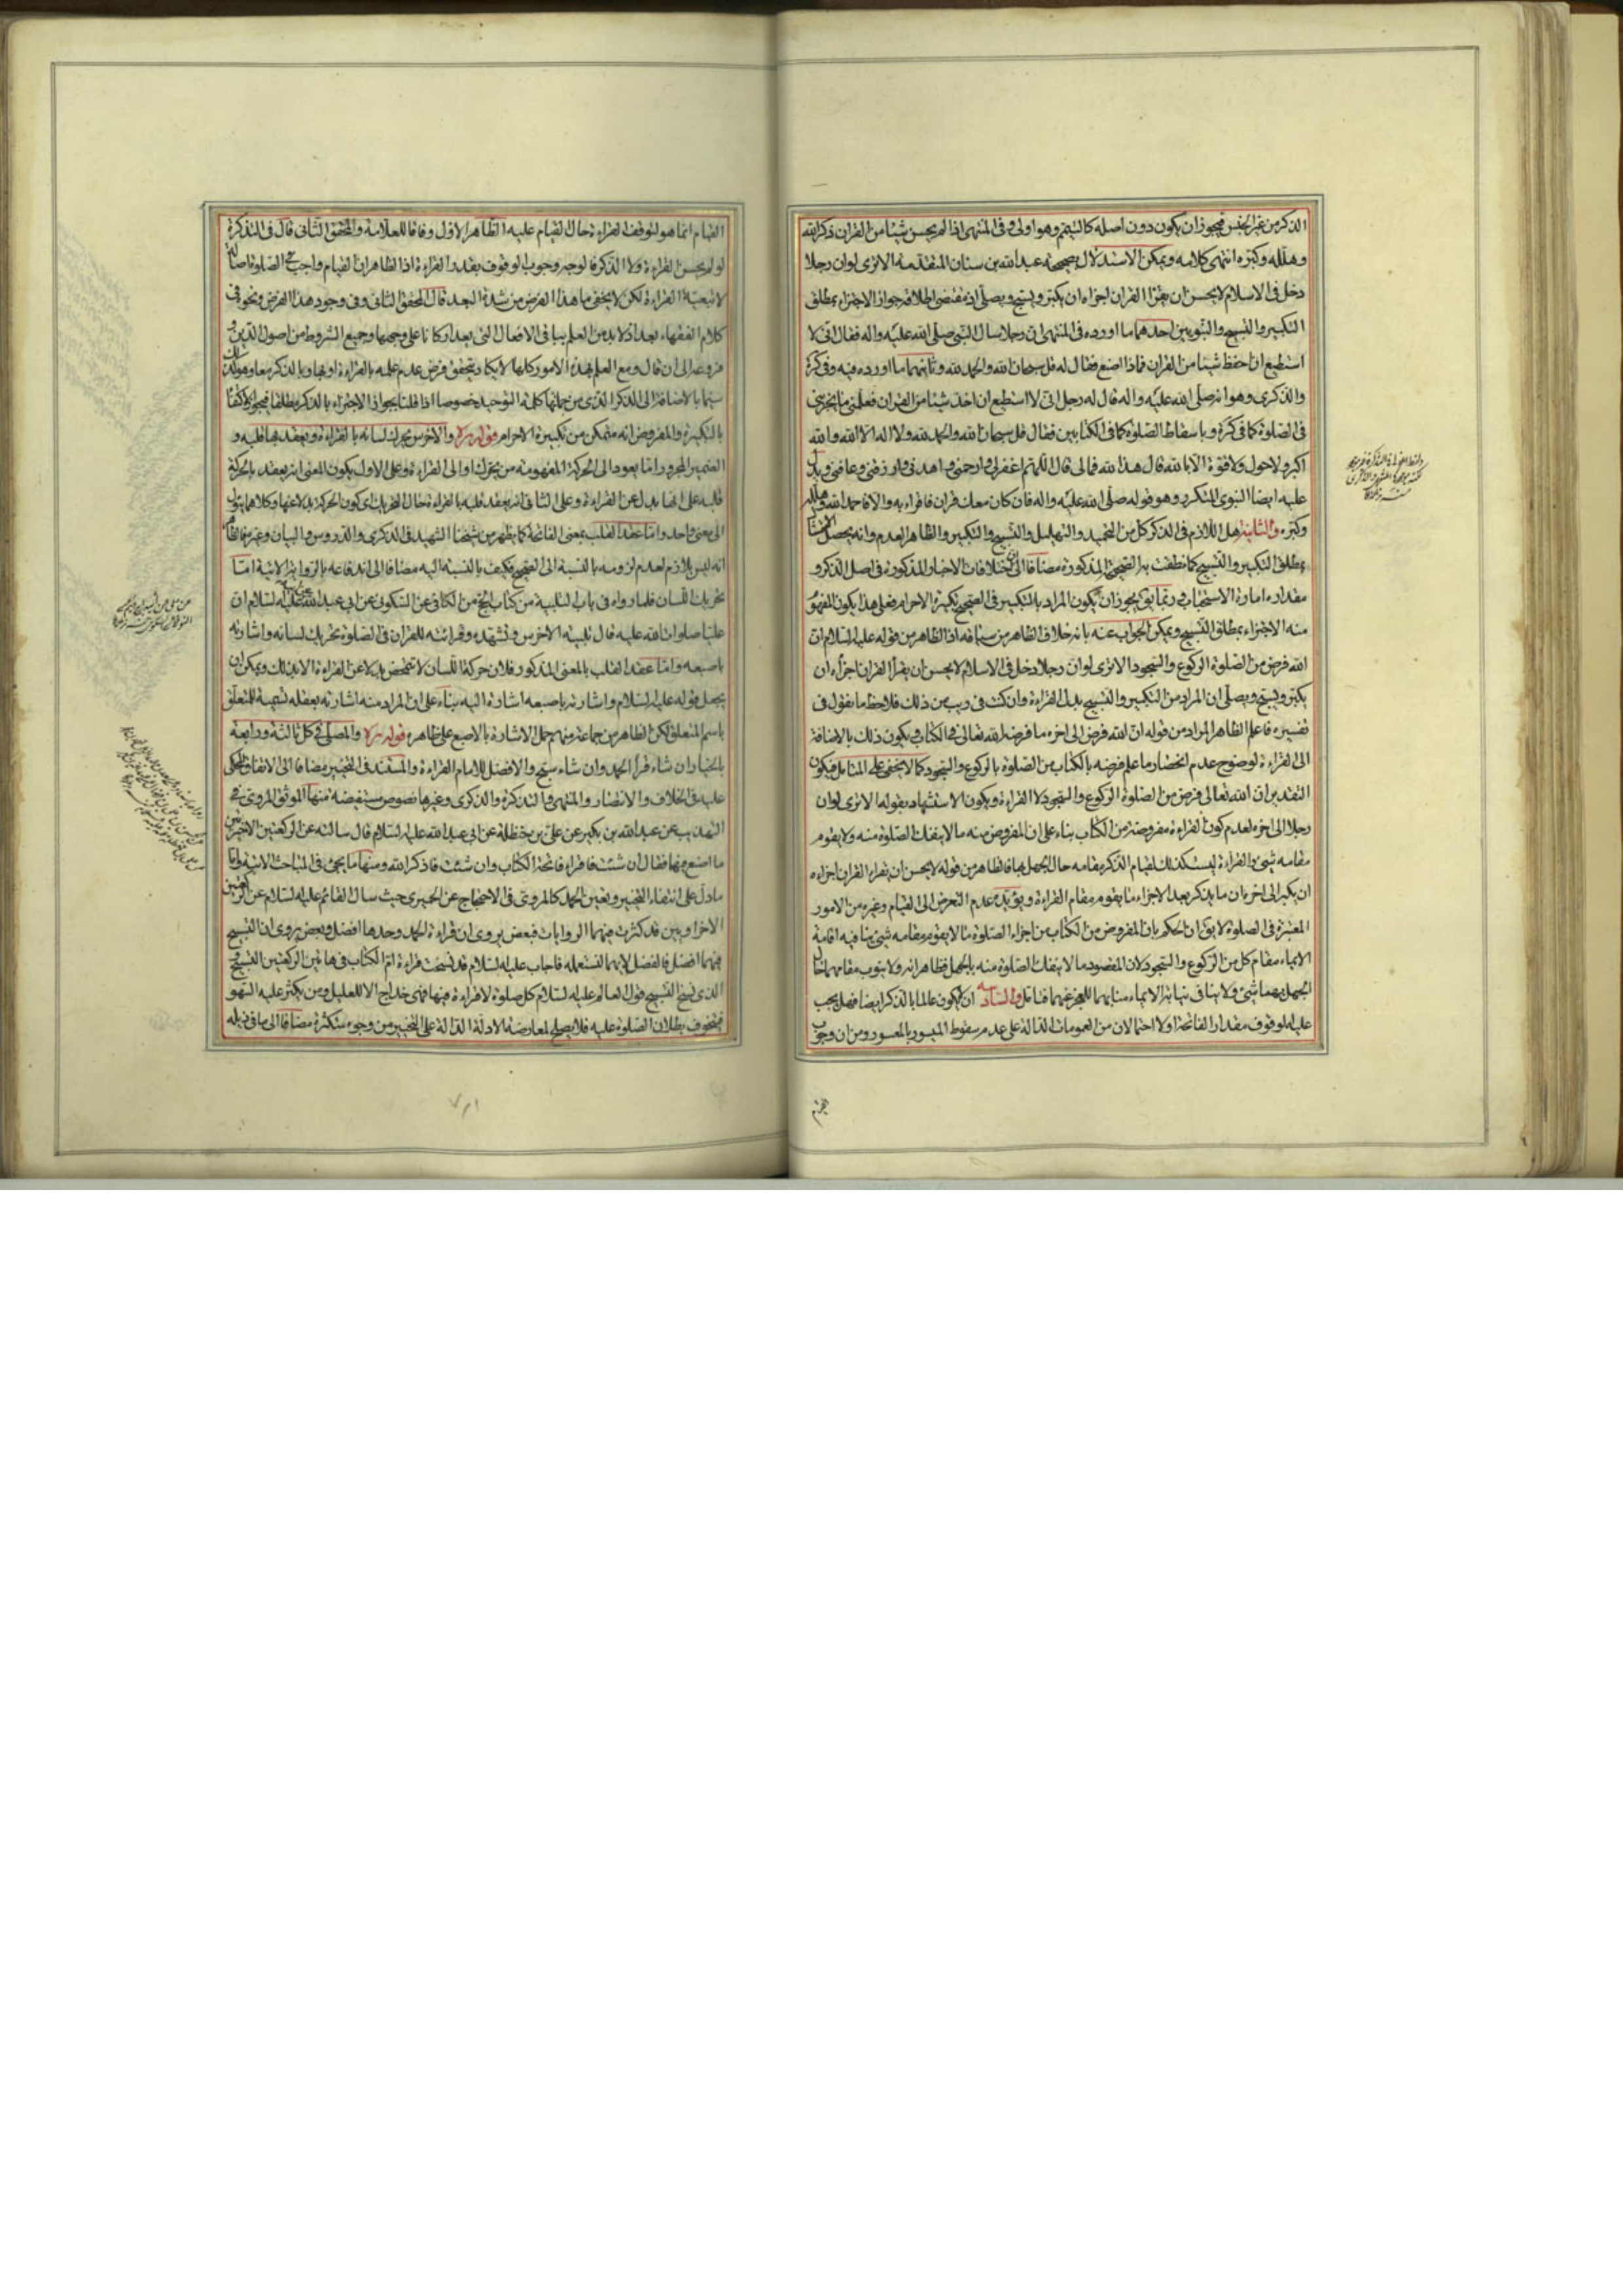 الذكر من غير الجنس فيجوز ان يكون دون اصله كالتيمم وهو اولى وفى المنتهى اذا لم يحسن شيئا من القران ذكر الله
وهلله وكبره انتهى كلامه ويمكن الاستدلال بصحيحة عبد الله بن سنان المتقدمة الا ترى لو ان رجلا
دخل فى الاسلام لا يحسن ان يقرأ القران اجزاه ان يكبر ويسبح ويصلى اذ مقتضى اطلاقه جواز الاجتزاء بمطلق
التكبير والتسبيح والنبويين احدهما ما اورده فى المنتهى ان رجلا سال النبى صلى الله عليه واله فقال انى لا
استطيع ان احفظ شيئا من القران فماذا اصنع فقال له قل سبحان الله والحمد لله وثانيهما ما اورده فيه وفى كرة
والذكرى وهو انه صلى الله عليه واله قال له رجل انى لا استطيع ان اخذ شيئا من القران فعلمنى ما يجزينى
فى الصلوة كما فى كرة وباسقاط الصلوة كما فى الكتابين فقال قل سبحان الله والحمد لله ولا اله الا الله والله
اكبر ولا حول ولا قوة الا بالله قال هذا لله فما لى قال قل اللهم اغفر لى وارحمنى واهدنى وارزقنى وعافنى ويدل
عليه ايضا النبوى المتكرر وهو قوله صلى الله عليه واله فان كان معك قران فاقراء به والا فاحمد الله وهلله
وكبره والثانية هل اللازم فى الذكر كل من التحميد والتهليل والتسبيح والتكبير والظاهر العدم وانه يحصل الامتثال
بمطلق التكبير والتسبيح كما نطقت به الصحيحة المذكورة مضافا الى ان اختلافات الاخبار المذكورة فى اصل الذكر و
مقداره امارة الاستحباب وربما يق يجوز ان يكون المراد بالتكبير فى الصحيح تكبيرة الاحرام فعلى هذا يكون المفهوم
منه الاجتزاء بمطلق التسبيح ويمكن الجواب عنه بانه خلاف الظاهر من سياقه اذ الظاهر من قوله عليه السلام ان
الله فرض من الصلوة الركوع والسجود الا ترى لو ان رجلا دخل فى الاسلام لا يحسن ان يقرأ القران اجزأه ان
يكبر ويسبح ويصلى ان المراد من التكبير والتسبيح بدل القراءة وان كنت فى ريب من ذلك فلاحظ ما نقول فى
تفسيره فاعلم الظاهر المراد من قوله ان الله فرض الى اخره ما فرضه الله تعالى فى الكتاب ويكون ذلك بالاضافة
الى القراءة لوضوح عدم انحصار ما علم فرضه بالكتاب من الصلوة بالركوع والسجود كما لا يخفى على المتامل فيكون
التقدير ان الله تعالى فرض من الصلوة الركوع والسجود لا القراءة ويكون الاستشهاد بقوله الا ترى لو ان
رجلا الى اخره لعدم كون القراءة مفروضة من الكتاب بناء على ان المفروض منه ما لا ينفك الصلوة منه ولا يقوم
مقامه شئ والقراءة ليست كذلك لقيام الذكر مقامه حال الجهل بها فالظاهر من قوله لا يحسن ان يقراء القران اجزاه
ان يكبر الى اخره ان ما يذكر بعد الاجزاء مما يقوم مقام القراءة ويؤيده عدم التعرض الى القيام وغيره من الامور
المعتبرة فى الصلوة لا يق ان الحكم بان المفروض من الكتاب من اجزاء الصلوة مما لا يقوم مقامه شئ ينافيه اقامة
الايماء مقام كل من الركوع والسجود لان المقصود ما لا ينفك الصلوة منه بالجهل فظاهر انه ولا ينوب مقامهما حال
الجهل بهما شئ ولا ينافى نيابة الايماء منابهما للعجز عنهما فتامل والثالثة ان لا يكون عالما بالذكر ايضا فهل يجب
عليه الوقوف مقدار الفاتحة او لا احتمالان من العمومات الدالة على عدم سقوط الميسور بالمعسور ومن ان وجوب
القيام انما هو لتوقف القراءة حال القيام عليه الظاهر الاول وفاقا للعلامة والمحقق الثانى قال فى التذكرة
لو لم يحسن القراءة ولا الذكر فالوجه وجوب الوقوف بقدر القراءة اذ الظاهر ان القيام واجب فى الصلوة اصالة
لا تبعية القراءة لكن لا يخفى ما هذا الفرض من شدة البعد قال المحقق الثانى وفى وجود هذا الفرض ونحوه فى
كلام الفقهاء بعد اذ لا بد من العلم بباقى الافعال التى يعد اركانا على وجهها وجميع الشروط من اصول الدين و
فروعه الى ان قال ومع العلم بهذه الامور كلها لا يكاد يتحقق فرض عدم علمه بالقراءة او بها وبالذكر معا وهو كذلك
سيما بالاضافة الى الذكر الذى من جملتها كلمة التوحيد خصوصا اذا قلنا بجواز الاجتزاء بالذكر مطلقا فيجوز الاكتفاء
بالتكبيرة والمفروض انه متمكن من تكبيرة الاحرام قوله ره والاخرس يحرك لسانه بالقراءة ويعقد بها قلبه و
الضمير المجرور اما يعود الى الحركة المفهومة من يحرك او الى القراءة وعلى الاول يكون المعنى انه يعقد بالحركة
قلبه على انها بدل عن القراءة وعلى الثانى انه يعقد قلبه بالقراءة حال التحريك اى كون الحركة بدلا عنها وكلاهما يؤل
الى معنى واحد واما عقد القلب بمعنى الفاتحة كما يظهر من شيخنا الشهيد فى الذكرى والدروس والبيان وغيرها فالظاهر
انه ليس بلازم لعدم لزومه بالنسبة الى الصحيح فكيف بالنسبة اليه مضافا الى اندفاعه بالرواية الاتية اما
تحريك اللسان فلما رواه فى باب التلبية من كتاب الحج من الكافى عن السكونى عن ابى عبد الله عليه السلام ان
عليا صلوات الله عليه قال تلبية الاخرس وتشهده وقرائته للقران فى الصلوة تحريك لسانه واشارته
باصبعه واما عقد القلب بالمعنى المذكور فلان حركة اللسان لا تتمحض بدلا عن القراءة الا بذلك ويمكن ان
يجعل قوله عليه السلام واشارته باصبعه اشارة اليه بناء على ان المراد منه اشارته بعقله تسمية للمتعلق
باسم المتعلق لكن الظاهر من جماعة منهم حمل الاشارة بالاصبع على ظاهره قوله ره والمصلى فى كل ثالثة ورابعة
بالخيار ان شاء قرأ الحمد وان شاء سبح والافضل للامام القراءة والمستند فى التخيير مضافا الى الاتفاق المحكى
عليه فى الخلاف والانتصار والمنتهى والتذكرة والذكرى وغيرها نصوص مستفيضة منها الموثق المروى فى
التهذيب عن عبد الله بن بكير عن على بن حنظلة عن ابى عبد الله عليه السلام قال سالته عن الركعتين الاخيرتين
ما اصنع فيهما فقال ان شئت فاقراء فاتحة الكتاب وان شئت فاذكر الله ومنها ما يجئ فى المباحث الاتية واما
ما دل على انتفاء التخيير وتعين الحمد كالمروى فى الاحتجاج عن الحميرى حيث سال القائم عليه السلام عن الركعتين
الاخراوين قد كثرت فيهما الروايات فبعض يروى ان قراءة الحمد وحدها افضل وبعض يروى ان التسبيح
فيهما افضل فالفضل لايهما لنستعمله فاجاب عليه السلام قد نسخت قراءة ام الكتاب فى هاتين الركعتين التسبيح و
الذى نسخ التسبيح قول العالم عليه السلام كل صلوة لا قراءة فيها فهى خداج الا للعليل ومن يكثر عليه السهو
فيتخوف بطلان الصلوة عليه فلا يصلح لمعارضة الادلة الدالة على التخيير من وجوه متكثرة مضافا الى ما فى ذيله